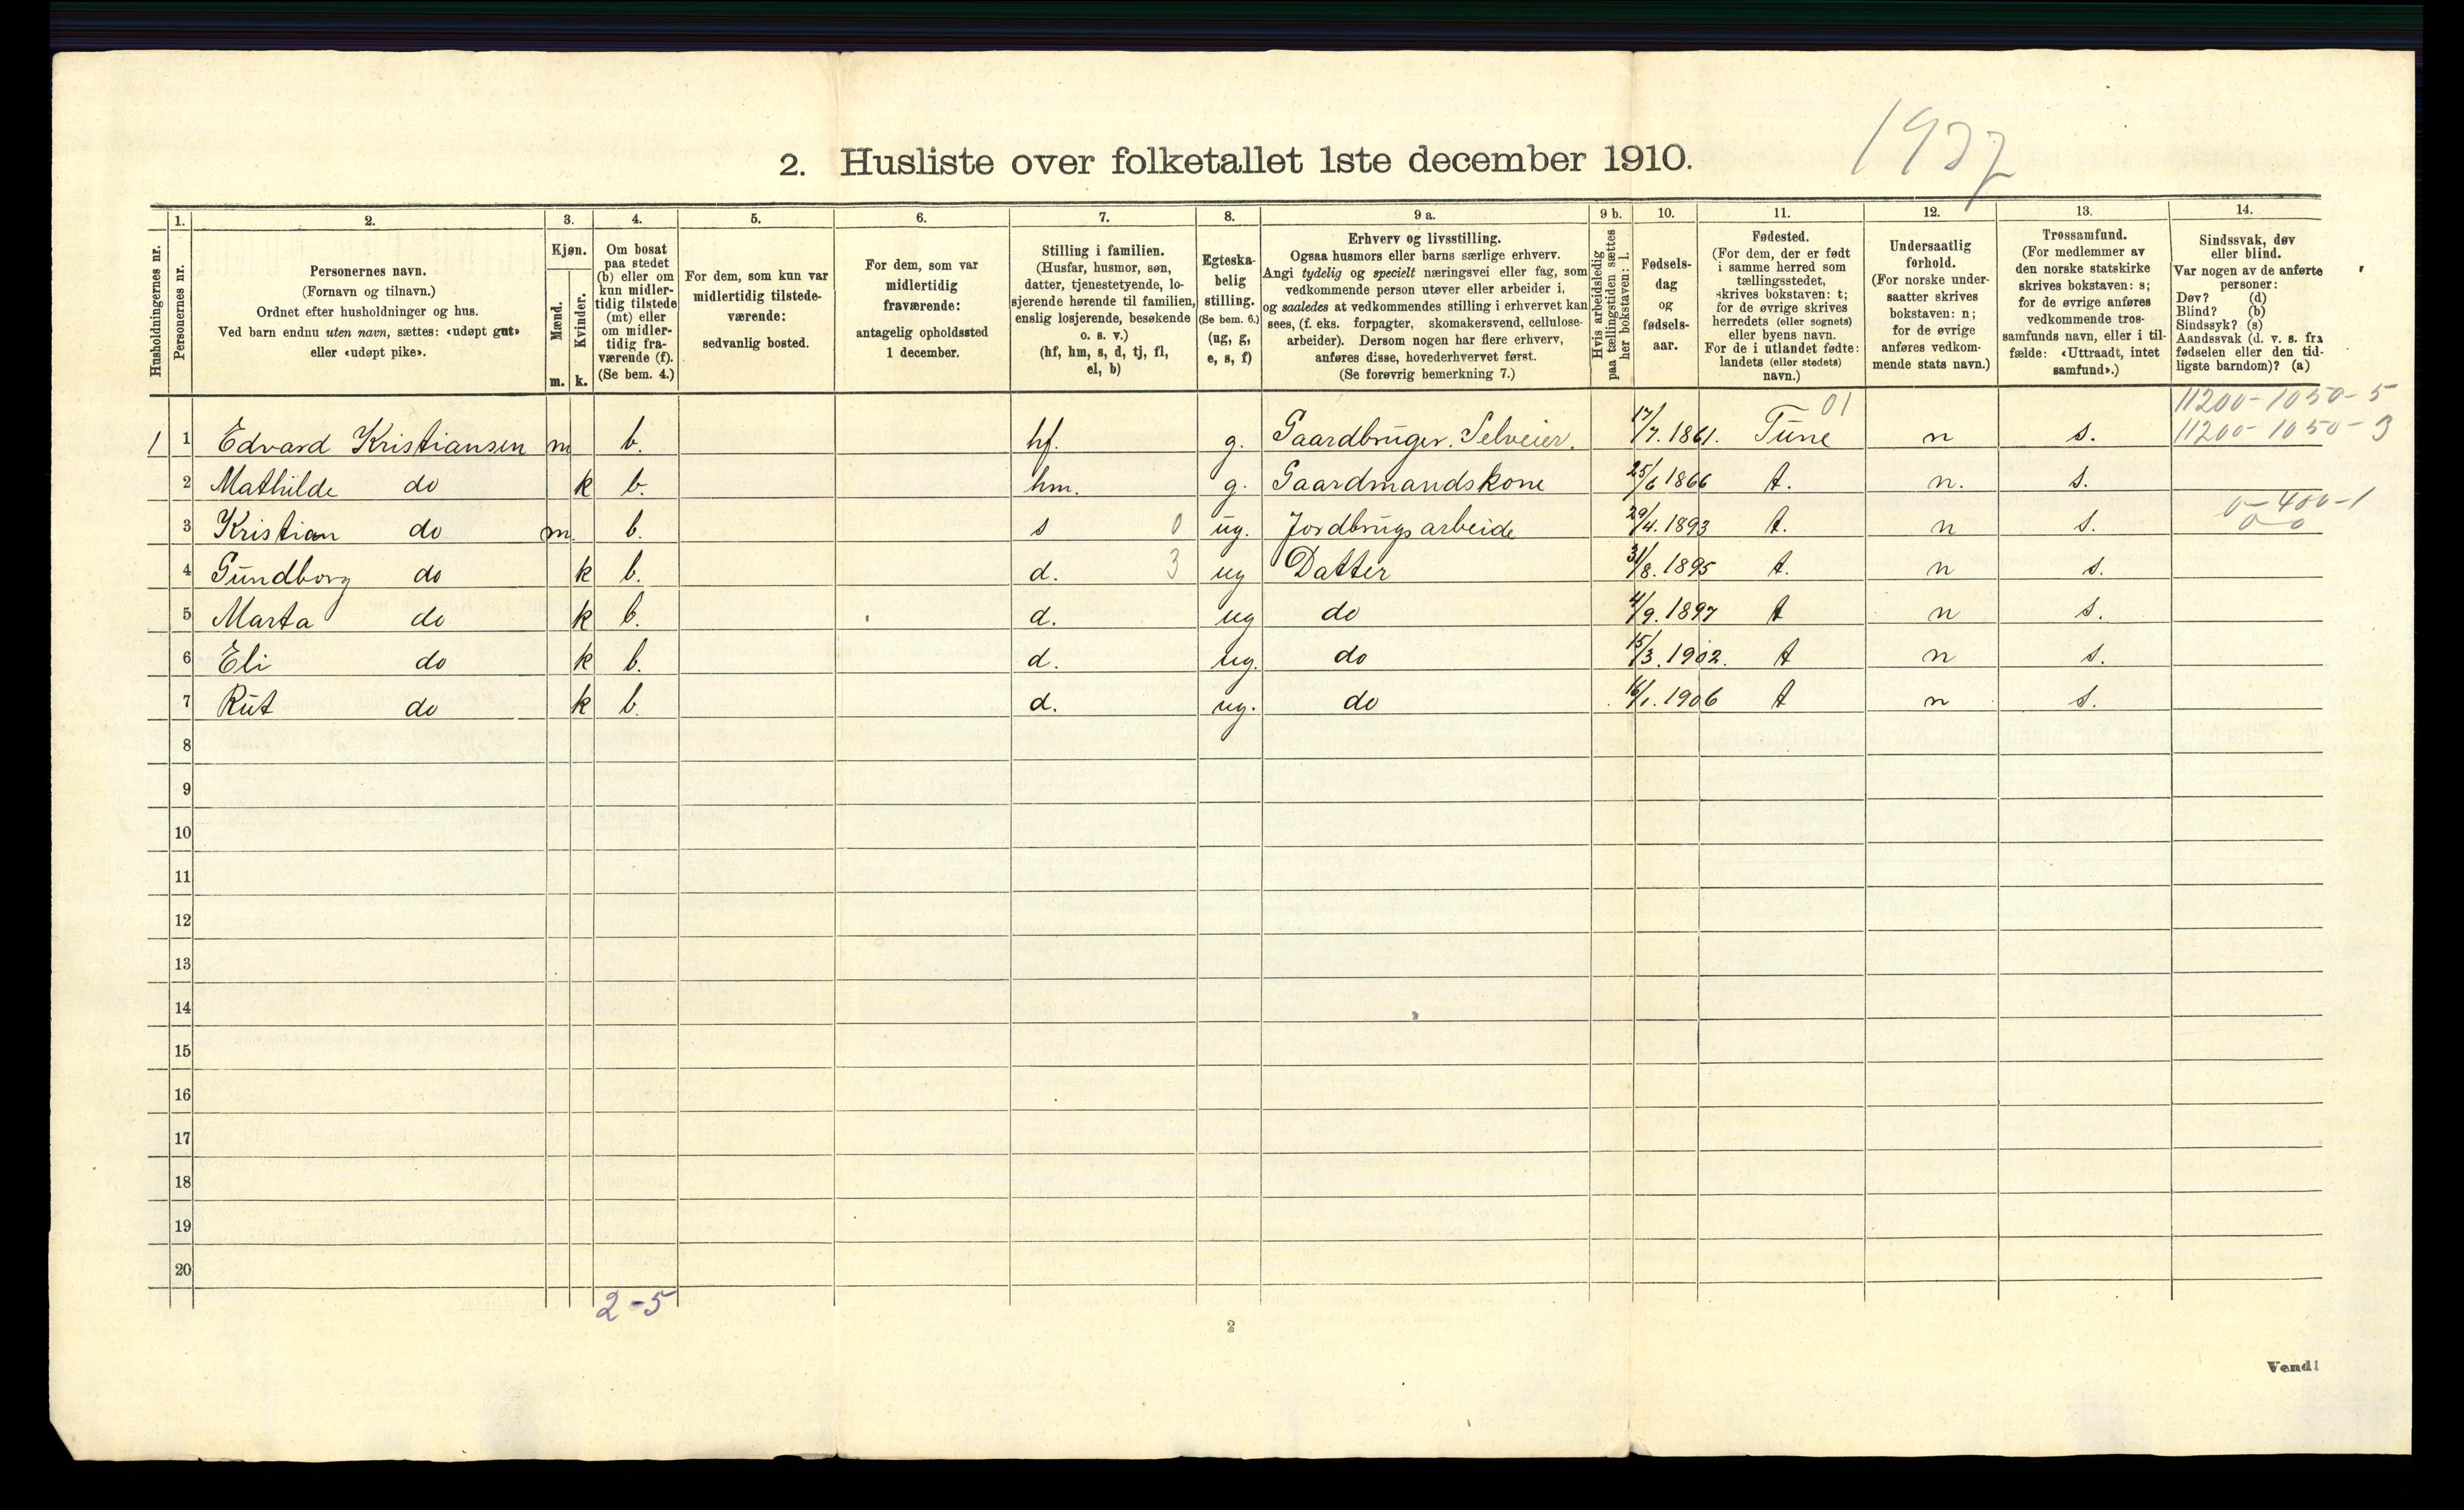 1937
2. Husliste over folketallet 1ste december 1910.
Husholdningernes nr.
1.
Personernes nr.
2.
Personernes navn.
(Fornavn og tilnavn.)
Ordnet efter husholdninger og hus.
Ved barn endnu uten navn, sættes: «udøpt gut»
eller «udøpt pike».
3.
Kjøn.
Mænd.
Kvinder.
m. k.
4.
Om bosat
paa stedet
(b) eller om
kun midler-
tidig tilstede
(mt) eller
om midler-
tidig fra-
værende (f).
(Se bem. 4.)
5.
For dem, som kun var
midlertidig tilstede-
værende:
sedvanlig bosted.
6.
For dem, som var
midlertidig
fraværende:
antagelig opholdssted
1 december.
7.
Stilling i familien.
(Husfar, husmor, søn,
datter, tjenestetyende, lo-
sjerende hørende til familien,
enslig losjerende, besøkende
o. s. v.)
(hf, hm, s, d, tj, fl,
el, b)
8.
Egteska-
belig
stilling.
(Se bem. 6.)
(ug, g,
e, s, f)
9 a.
Erhverv og livsstilling.
Ogsaa husmors eller barns særlige erhverv.
Angi tydelig og specielt næringsvei eller fag, som
vedkommende person utøver eller arbeider i,
og saaledes at vedkommendes stilling i erhvervet kan
sees, (f. eks. forpagter, skomakersvend, cellulose-
arbeider). Dersom nogen har flere erhverv,
anføres disse, hovederhvervet først.
(Se forøvrig bemerkning 7.)
9 b.
Hvis arbeidsledig
paa tællingstiden sættes
her bokstaven: l.
10.
Fødsels-
dag
og
fødsels-
aar.
11.
Fødested.
(For dem, der er født
i samme herred som
tællingsstedet,
skrives bokstaven: t;
for de øvrige skrives
herredets (eller sognets)
eller byens navn.
For de i utlandet fødte:
landets (eller stedets)
navn.)
12.
Undersaatlig
forhold.
(For norske under-
saatter skrives
bokstaven: n;
for de øvrige
anføres vedkom-
mende stats navn.)
13.
Trossamfund.
(For medlemmer av
den norske statskirke
skrives bokstaven: s;
for de øvrige anføres
vedkommende tros-
samfunds navn, eller i til-
fælde: «Uttraadt, intet
samfund».)
14.
Sindssvak, døv
eller blind.
Var nogen av de anførte
personer:
Døv? (d)
Blind? (b)
Sindssyk? (s)
Aandssvak (d. v. s. fra
fødselen eller den tid-
ligste barndom)? (a)
01 11200-1050-5
1 1 Edvard Kristiansen m b. hf. g. Gaardbruger. Selveier. 17/7. 1861. Tune n s. 11200-1050-3
2 Mathilde do k b. hm. g. Gaardmandskone 25/6 1866 t. n. s.
0-400-1
3 Kristian do m. b. s 0 ug. Jordbrugsarbeide 29/4. 1893 t. n s. 0-0
4 Gundborg do k b. d. 3 ug Datter 31/8. 1895 t. n s.
5 Marta do k b. d. ug do 4/9. 1897 t n s.
6 Eli do k b. d. ug. do 15/3. 1902. t n s.
7 Rut do k b. d. ug. do 16/1. 1906 t n s.
8
9
10
11
12
13
14
15
16
17
18
19
20
2-5
2
Vend!